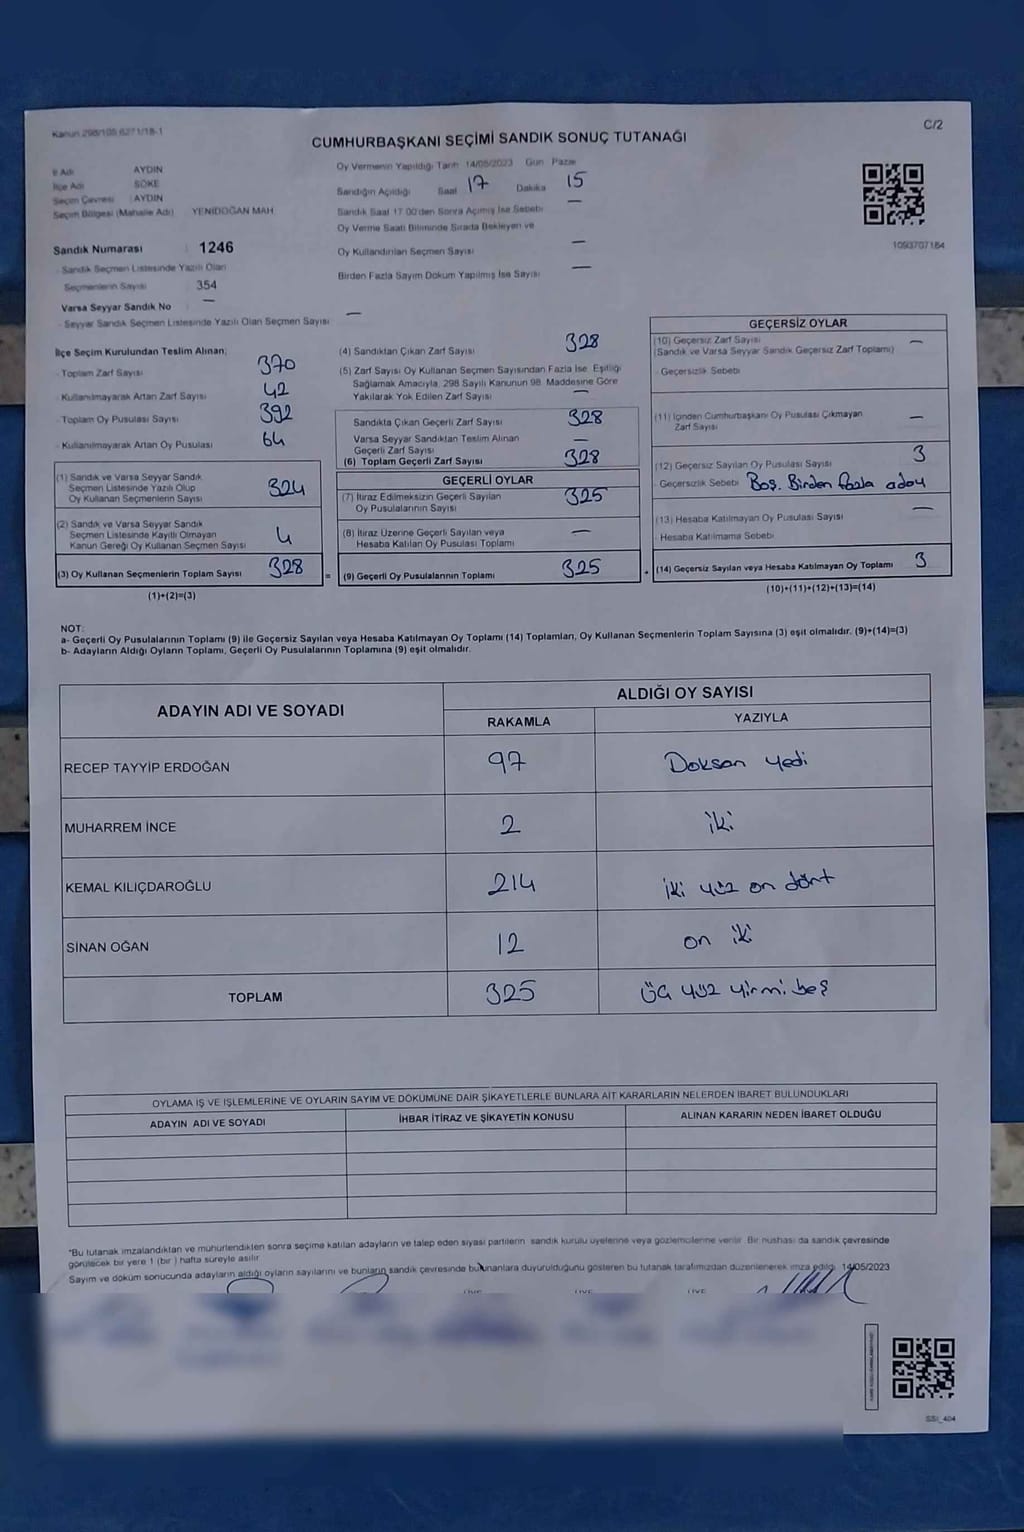 Kanun 298/105 6271/18-1
C/2
CUMHURBAŞKANI SEÇİMİ SANDIK SONUÇ TUTANAĞI
İl Adı AYDIN
İlçe Adı SÖKE
Seçim Çevresi : AYDIN
Seçim Bölgesi (Mahalle Adı) YENİDOĞAN MAH
Sandık Numarası : 1246
- Sandık Seçmen Listesinde Yazılı Olan
Seçmenlerin Sayısı : 354
Varsa Seyyar Sandık No —
- Seyyar Sandık Seçmen Listesinde Yazılı Olan Seçmen Sayısı —
Oy Vermenin Yapıldığı Tarih 14/05/2023 Gün Pazar
Sandığın Açıldığı Saat 17 Dakika 15
Sandık Saat 17.00'den Sonra Açılmış İse Sebebi —
Oy Verme Saati Bitiminde Sırada Bekleyen ve
Oy Kullandırılan Seçmen Sayısı —
Birden Fazla Sayım Döküm Yapılmış İse Sayısı —
1093707184
İlçe Seçim Kurulundan Teslim Alınan;
- Toplam Zarf Sayısı 370
- Kullanılmayarak Artan Zarf Sayısı 42
- Toplam Oy Pusulası Sayısı 392
- Kullanılmayarak Artan Oy Pusulası 64
(1) Sandık ve Varsa Seyyar Sandık
Seçmen Listesinde Yazılı Olup
Oy Kullanan Seçmenlerin Sayısı 324
(2) Sandık ve Varsa Seyyar Sandık
Seçmen Listesinde Kayıtlı Olmayan
Kanun Gereği Oy Kullanan Seçmen Sayısı 4
(3) Oy Kullanan Seçmenlerin Toplam Sayısı 328
(1)+(2)=(3)
(4) Sandıktan Çıkan Zarf Sayısı 328
(5) Zarf Sayısı Oy Kullanan Seçmen Sayısından Fazla İse, Eşitliği
Sağlamak Amacıyla, 298 Sayılı Kanunun 98. Maddesine Göre
Yakılarak Yok Edilen Zarf Sayısı —
Sandıkta Çıkan Geçerli Zarf Sayısı 328
Varsa Seyyar Sandıktan Teslim Alınan
Geçerli Zarf Sayısı —
(6) Toplam Geçerli Zarf Sayısı 328
GEÇERLİ OYLAR
(7) İtiraz Edilmeksizin Geçerli Sayılan
Oy Pusulalarının Sayısı 325
(8) İtiraz Üzerine Geçerli Sayılan veya
Hesaba Katılan Oy Pusulası Toplamı —
= (9) Geçerli Oy Pusulalarının Toplamı 325
GEÇERSİZ OYLAR
(10) Geçersiz Zarf Sayısı —
(Sandık ve Varsa Seyyar Sandık Geçersiz Zarf Toplamı)
- Geçersizlik Sebebi
(11) İçinden Cumhurbaşkanı Oy Pusulası Çıkmayan
Zarf Sayısı —
(12) Geçersiz Sayılan Oy Pusulası Sayısı 3
- Geçersizlik Sebebi Boş. Birden fazla aday
(13) Hesaba Katılmayan Oy Pusulası Sayısı —
- Hesaba Katılmama Sebebi
+ (14) Geçersiz Sayılan veya Hesaba Katılmayan Oy Toplamı 3
(10)+(11)+(12)+(13)=(14)
NOT:
a- Geçerli Oy Pusulalarının Toplamı (9) ile Geçersiz Sayılan veya Hesaba Katılmayan Oy Toplamı (14) Toplamları, Oy Kullanan Seçmenlerin Toplam Sayısına (3) eşit olmalıdır. (9)+(14)=(3)
b- Adayların Aldığı Oyların Toplamı, Geçerli Oy Pusulalarının Toplamına (9) eşit olmalıdır.
ADAYIN ADI VE SOYADI
ALDIĞI OY SAYISI
RAKAMLA YAZIYLA
RECEP TAYYİP ERDOĞAN 97 Doksan yedi
MUHARREM İNCE 2 iki
KEMAL KILIÇDAROĞLU 214 iki yüz on dört
SİNAN OĞAN 12 on iki
TOPLAM 325 üç yüz yirmi beş
OYLAMA İŞ VE İŞLEMLERİNE VE OYLARIN SAYIM VE DÖKÜMÜNE DAİR ŞİKAYETLERLE BUNLARA AİT KARARLARIN NELERDEN İBARET BULUNDUKLARI
ADAYIN ADI VE SOYADI İHBAR İTİRAZ VE ŞİKAYETİN KONUSU ALINAN KARARIN NEDEN İBARET OLDUĞU
*Bu tutanak imzalandıktan ve mühürlendikten sonra seçime katılan adayların ve talep eden siyasi partilerin sandık kurulu üyelerine veya gözlemcilerine verilir. Bir nüshası da sandık çevresinde
görülecek bir yere 1 (bir) hafta süreyle asılır.
Sayım ve döküm sonucunda adayların aldığı oyların sayılarını ve bunların sandık çevresinde bulunanlara duyurulduğunu gösteren bu tutanak tarafımızdan düzenlenerek imza edildi. 14/05/2023
SSI_404